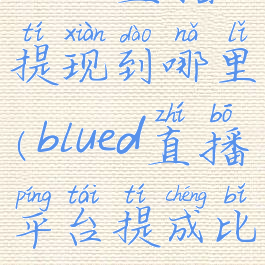 tí xiàn dào nǎ lǐ
提现到哪里
zhí bō
(blued直播
píng tái tí chéng bǐ
平台提成比